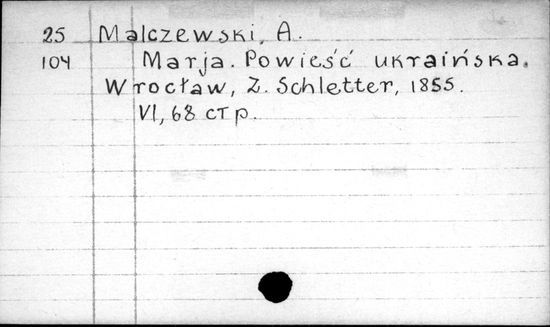 25 Malczewski, A.
104 Marja. Powieść ukraińska.
Wrocław, Z. Schletter, 1855.
VI, 68 стр.